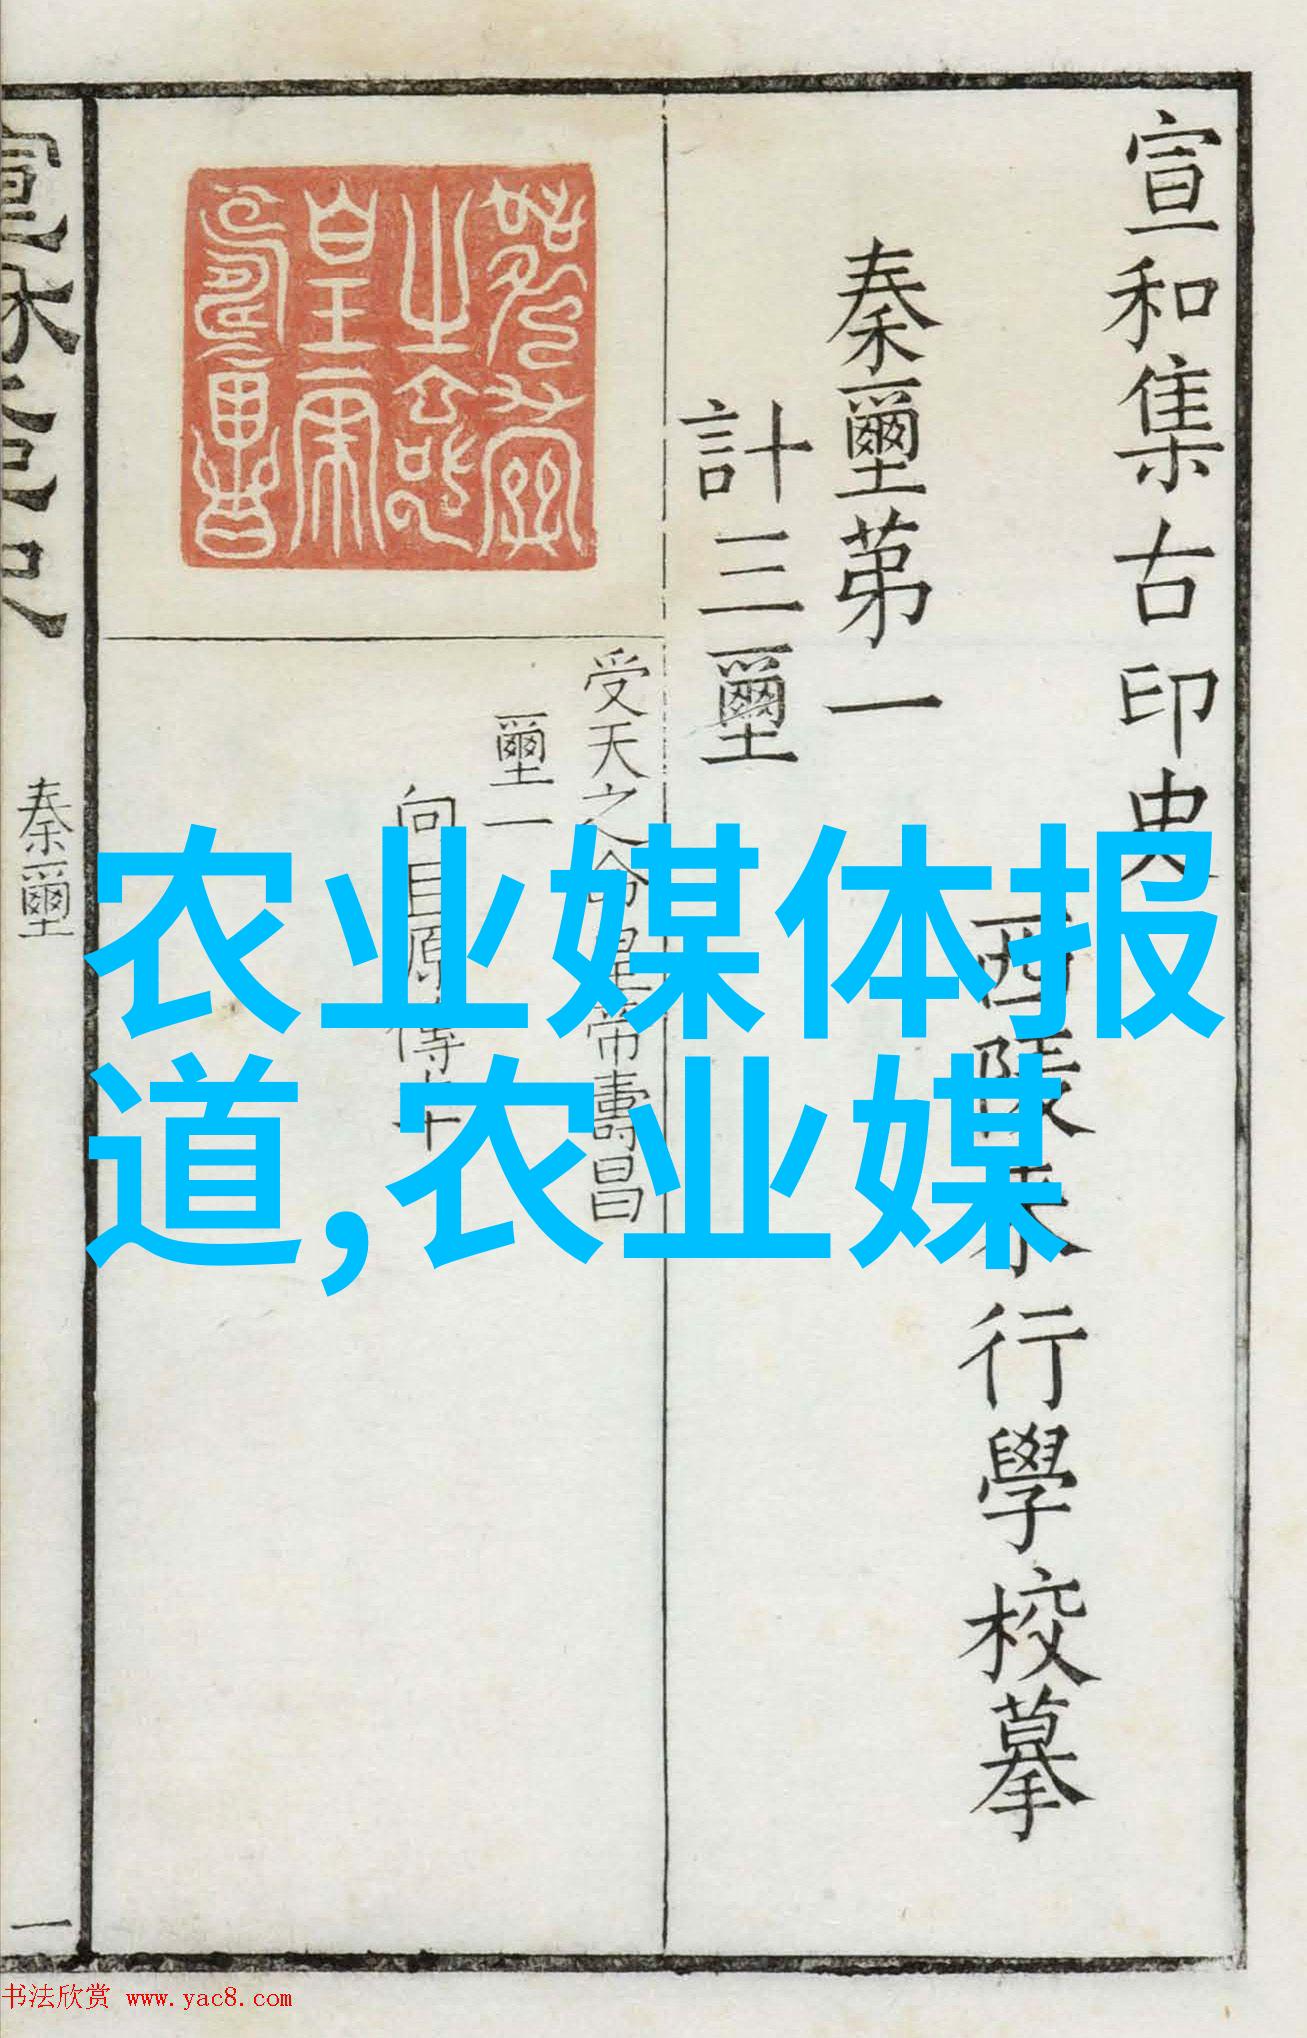 宣和集古印史
西陵来行學校摹
秦璽第一
計三璽
受天之命皇帝壽昌
璽一
向巨原傳本
秦璽
一
农业媒体报
道,农业媒
书法欣赏 www.yac8.com